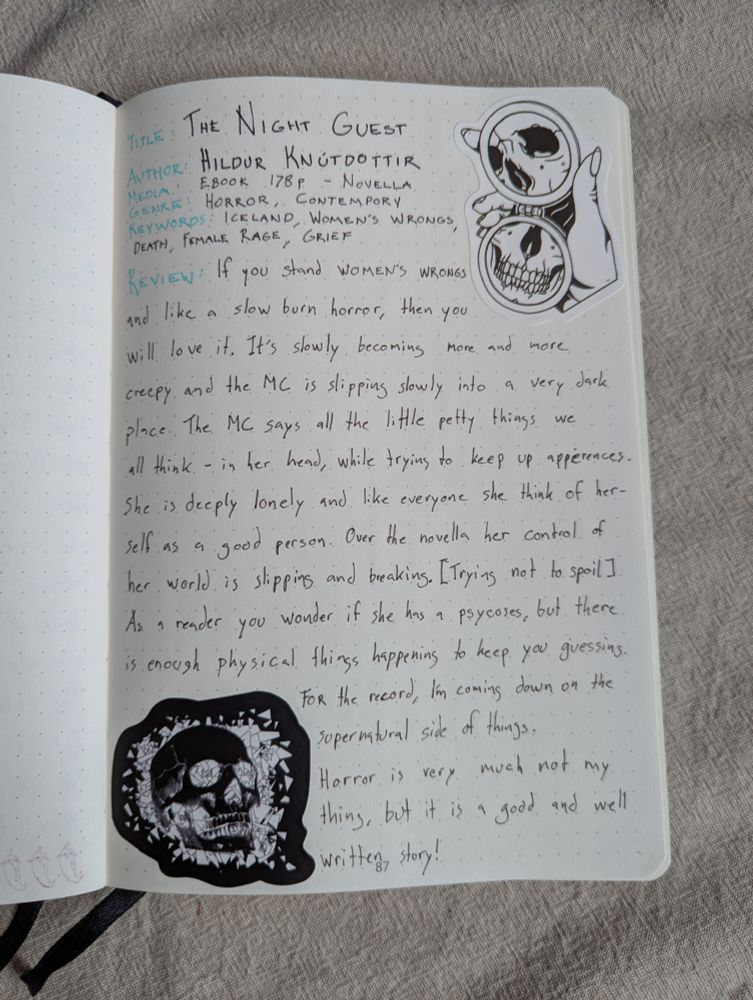 TITLE: THE NIGHT GUEST
AUTHOR: HILDUR KNÚTDOTTIR
MEDIA: EBOOK 178P - NOVELLA
GENRE: HORROR, CONTEMPORY
KEYWORDS: ICELAND, WOMEN'S WRONGS,
DEATH, FEMALE RAGE, GRIEF
REVIEW: If you stand WOMEN'S WRONGS
and like a slow burn horror, then you
will love it. It's slowly becoming more and more
creepy and the MC is slipping slowly into a very dark
place. The MC says all the little petty things we
all think - in her head, while trying to keep up apperences.
She is deeply lonely and like everyone she think of her-
self as a good person. Over the novella her control of
her world is slipping and breaking. [Trying not to spoil]
As a reader you wonder if she has a psycoses, but there
is enough physical things happening to keep you guessing.
FOR the record, I'm coming down on the
supernatural side of things.
Horror is very much not my
thing, but it is a good and well
written story!
87